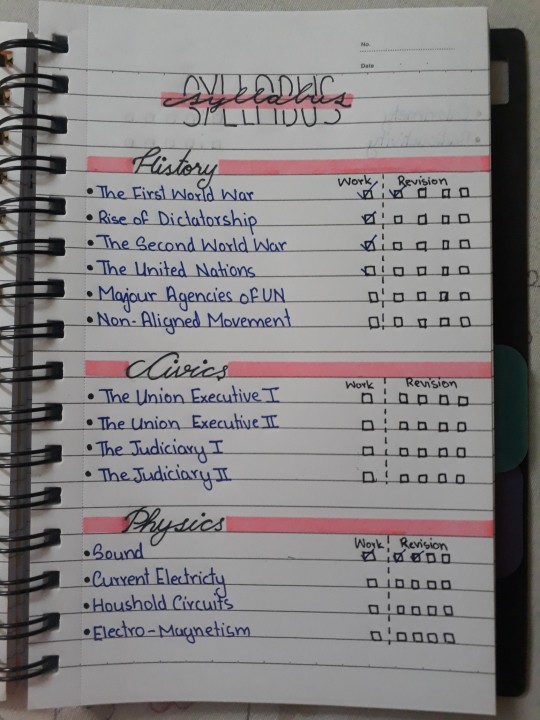 No.
Date
SYLLABUS
syllabus
History
Work Revision
• The First World War
• Rise of Dictatorship
• The Second World War
• The United Nations
• Majour Agencies of UN
• Non-Aligned Movement
Civics
Work Revision
• The Union Executive I
• The Union Executive II
• The Judiciary I
• The Judiciary II
Physics
Work Revision
• Sound
• Current Electricty
• Houshold Circuits
• Electro-Magnetism